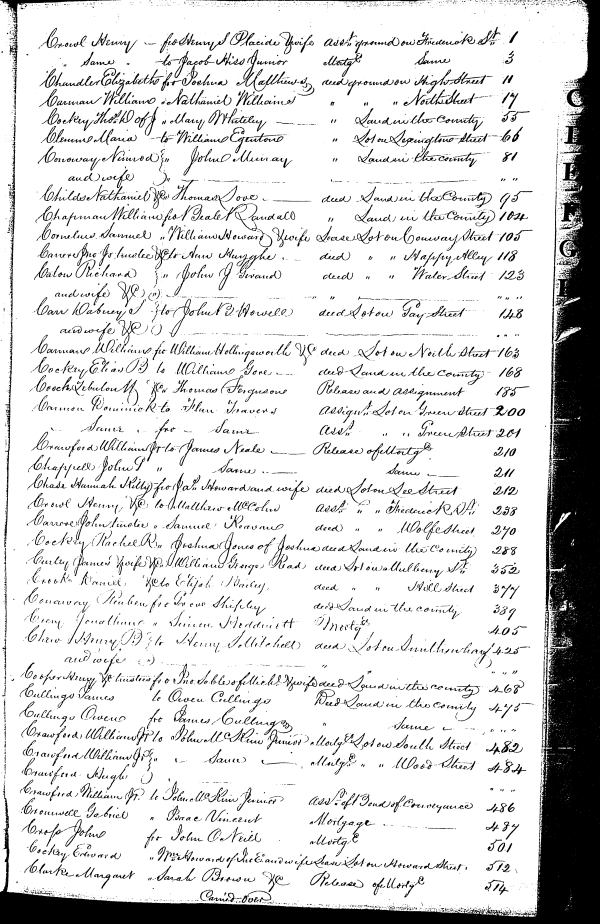 Crowl Henry — fro Henry S Placide & wife asst. ground on Frederick St. 1
" Same " to Jacob Hiss Junior Mortge. Same 3
Chandler Elizabeth fro Joshua Matthews deed ground on High Street 11
Carman William " Nathaniel Williams " " " North Street 17
Cockey Thos. D of J " Mary Whiteley — " Land in the County 55
Clemm Maria to William " Lot on Lexington Street 66
Conoway Nimrod } " John Murray " Land in the county 81
and wife } " — " "
Childs Nathaniel &c " Thomas Love — deed Land in the County 95
Chapman William fro Beale Randall " Land in the County 104
Cornelius Samuel " William Howard & wife Lease Lot on Conway Street 105
Carrere Jno Jr trustee &c to Ann deed " " Happy Alley 118
Caton Richard } " John J Girand deed " " Water Street 123
and wife &c } " — " " " "
Carr Dabney S } to John B Howell deed Lot on Gay Street 148
and wife &c } " "
Carman William fro William Hollingsworth &c deed Lot on North Street 163
Cockey Elias B to William Gore — deed Land in the county 168
&c " Thomas Ferguson Release and assignment 185
Cannon Dominick to Travers Assignt. Lot on Green Street 200
" Same " fro — Same Asst. " " Green Street 201
Crawford William Jr to James Neale — Release of Mortge. 210
Chappell John G " Same " — Same — 211
Chase Hannah Kitty fro Jas. Howard and wife deed Lot on Lee Street 212
Crowl Henry &c to Matthew McColm asst. " " Frederick St. 238
Carrere John trustee " Samuel deed " " Wolfe Street 270
Cockey Rachel R " Joshua Jones of Joshua deed Land in the County 288
Curley James & wife &c " William George Read deed Lot on Mulberry St. 352
Crook Daniel &c to Elijah deed " " Hill Street 377
Conaway Reuben fro Grove Shipley deed Land in the county 389
Jonathan " Simon Mortge. 405
Chew Henry B } to Henry S Mitchell deed Lot on 425
and wife } " — " " " "
Cooper Henry &c trustees fro Jno Sable of Michl. & wife deed Land in the county 468
Cullings James to Owen Cullings Deed Land in the county 475
Cullings Owen fro James Cullings " Same — " "
Crawford William Jr to John McKim Junior Mortge. Lot on South Street 482
Crawford William Jr & } " " Same — Mortge. " " Wood Street 484
Crawford Hugh } " "
Crawford William Jr. to John McKim Junior Asst. of Bond of Conveyance 486
Cromwell Gabriel " Isaac Vincent Mortgage — 487
Cross John for John O Neill Mortge. 501
Cockey Edward " Wm. Howard of Jno E and wife Lease Lot on Howard Street. 512
Clarke Margaret " Sarah Brown &c Release of Mortge. 514
Carried over